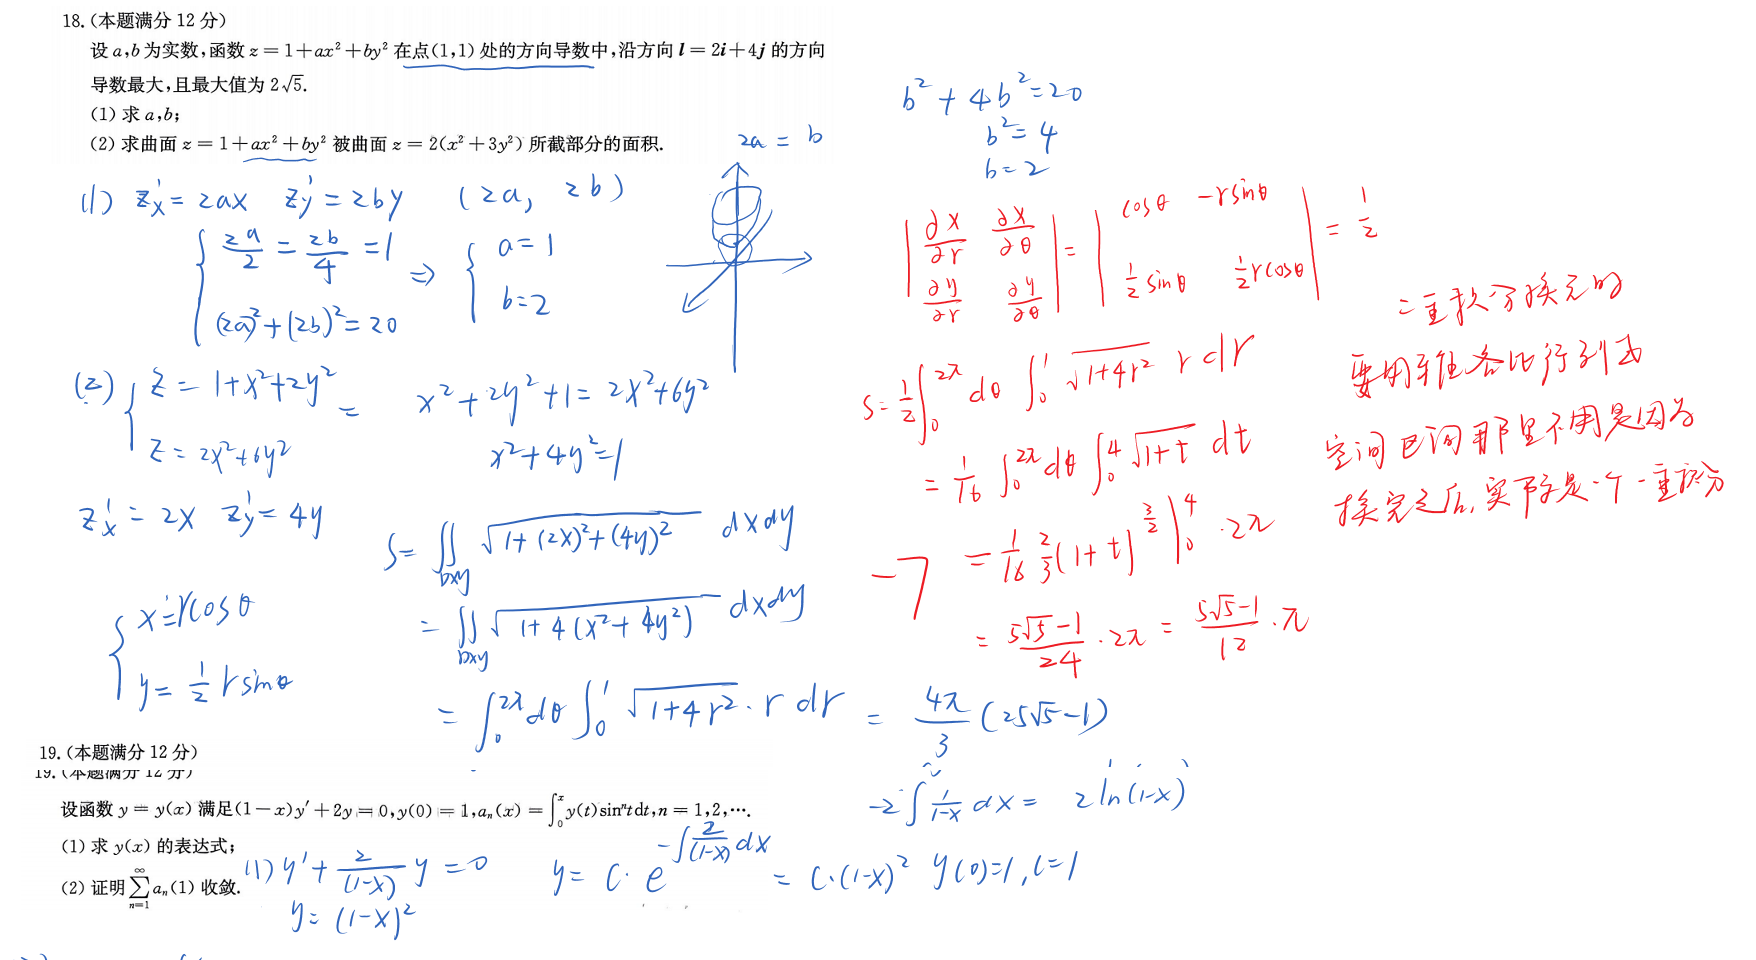 18.(本题满分 12 分)
设 a,b 为实数,函数 z = 1+ax²+by² 在点(1,1) 处的方向导数中,沿方向 l = 2i+4j 的方向
导数最大,且最大值为 2√5.
(1) 求 a,b;
(2) 求曲面 z = 1+ax²+by² 被曲面 z = 2(x²+3y²) 所截部分的面积.
2a = b
b²+4b²=20
b²=4
b=2
(1) z'x = 2ax z'y = 2by (2a, 2b)
{ 2a/2 = 2b/4 = 1 ⇒ { a=1
(2a)²+(2b)²=20 b=2
(2) { z = 1+x²+2y² = x²+2y²+1 = 2x²+6y²
z = 2x²+6y² x²+4y²=1
z'x = 2x z'y = 4y
S= ∬Dxy √(1+(2x)²+(4y)²) dxdy
= ∬Dxy √(1+4(x²+4y²)) dxdy
{ x=rcosθ
y= 1/2 rsinθ
= ∫₀^2π dθ ∫₀^1 √(1+4r²)·r dr = 4π/3 (25√5-1)
| ∂x/∂r ∂x/∂θ | = | cosθ -rsinθ | = 1/2
| ∂y/∂r ∂y/∂θ | | 1/2 sinθ 1/2 rcosθ |
S= 1/2 ∫₀^2π dθ ∫₀^1 √(1+4r²) r dr
= 1/16 ∫₀^2π dθ ∫₀^4 √(1+t) dt
-7 = 1/16 2/3 (1+t)^3/2 |₀^4 ·2π
= (5√5-1)/24 ·2π = (5√5-1)/12 ·π
二重积分换元时
要用雅各比行列式
空间 那里不用是因为
换完之后,实际是一个一重积分
19.(本题满分 12 分)
19.(本题满分 12 分)
设函数 y = y(x) 满足(1-x)y′+2y=0,y(0)=1,aₙ(x)=∫₀^x y(t)sinⁿtdt,n=1,2,⋯.
(1) 求 y(x) 的表达式;
(2) 证明 ∑(n=1→∞) aₙ(1) 收敛.
-2∫ 1/(1-x) dx = 2ln(1-x)
(1) y'+ 2/(1-x) y =0 y= C·e^(-∫ 2/(1-x) dx) = C·(1-x)² y(0)=1, C=1
y= (1-x)²